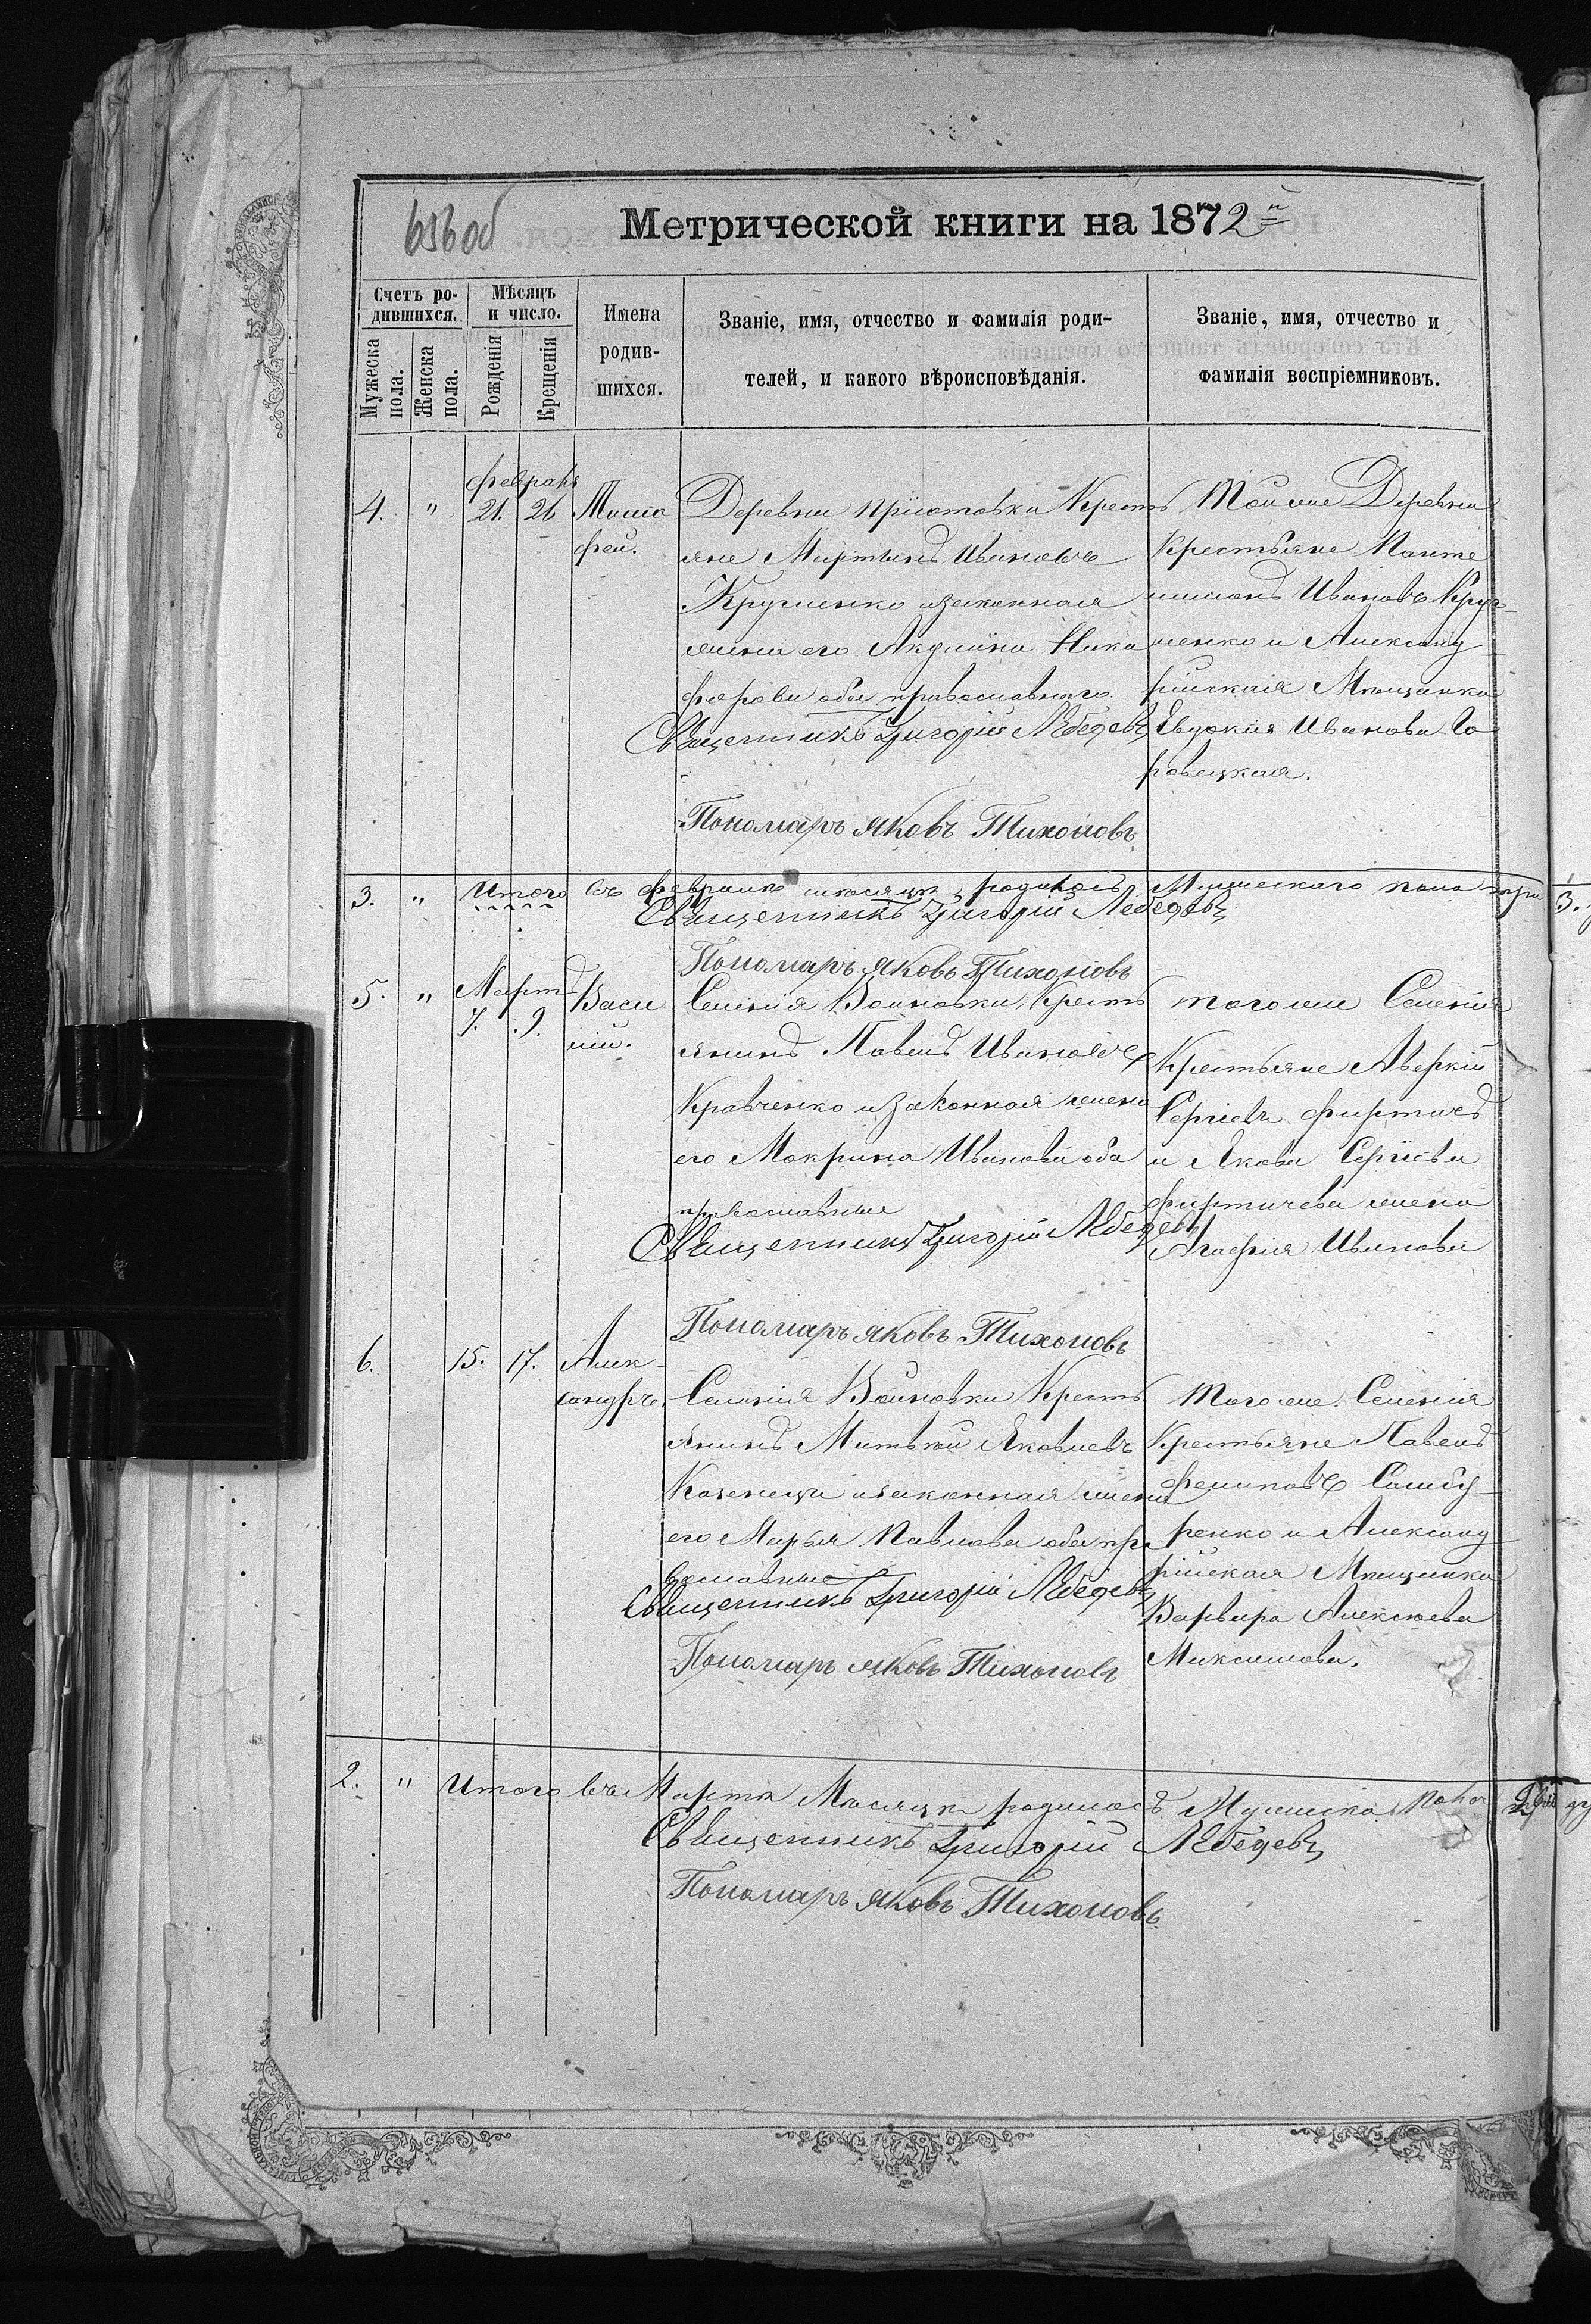 656об
Метрической книги на 1872й
Счетъ ро-
дившихся.
Мѣсяцъ
и число.
Мужеска
пола.
Женска
пола.
Рожденія
Крещенія
Имена
родив-
шихся.
Званіе, имя, отчество и фамилія роди-
телей, и какого вѣроисповѣданія.
Званіе, имя, отчество и
фамилія воспріемниковъ.
февраля
4. " 21. 26 Тимо
фей.
Деревни Кресть
яне Мартынъ Ивановъ
Кругленко и законная
жена его Акулина Ники
форова оба православнаго
Священникъ Григорій Лебедевъ
Пономарь Яковъ Тихоновъ
Той же Деревни
Крестьяне Панте
лимонъ Ивановъ Круг-
ленко и Александ
рійская Мѣщанка
Евдокія Иванова Го
ровецкая.
3. " Итого въ февралѣ мѣсяцѣ родилось Мужескаго пола три 3.
Священникъ Григорій Лебедевъ
Пономарь Яковъ Тихоновъ
Мартъ
5. " 7. 9. Васи
лій.
Селенія Войновки Кресть
янинъ Павелъ Ивановъ
Кравченко и законная жена
его Мокрина Иванова оба
православные
Священникъ Григорій Лебедевъ
Пономарь Яковъ Тихоновъ
того же Селенія
Крестьяне Аверкій
Сергіевъ Фиртичъ
и Якова Сергіева
Фиртичева жена
Агафія Иванова
6. 15. 17. Алек-
сандръ.
Селенія Войновки Кресть
янинъ Матвѣй Яковлевъ
Козенецъ и законная жена
его Марья Павлова оба пра
вославные
Священникъ Григорій Лебедевъ
Пономарь Яковъ Тихоновъ
Того же Селенія
Крестьяне Павелъ
Филиповъ Самбу-
ренко и Александ
рійская Мѣщанка
Варвара Алексѣева
Максимова.
2. " Итого въ Мартѣ Мѣсяцѣ родилось Мужеска пола
Священникъ Григорій Лебедевъ
Пономарь Яковъ Тихоновъ